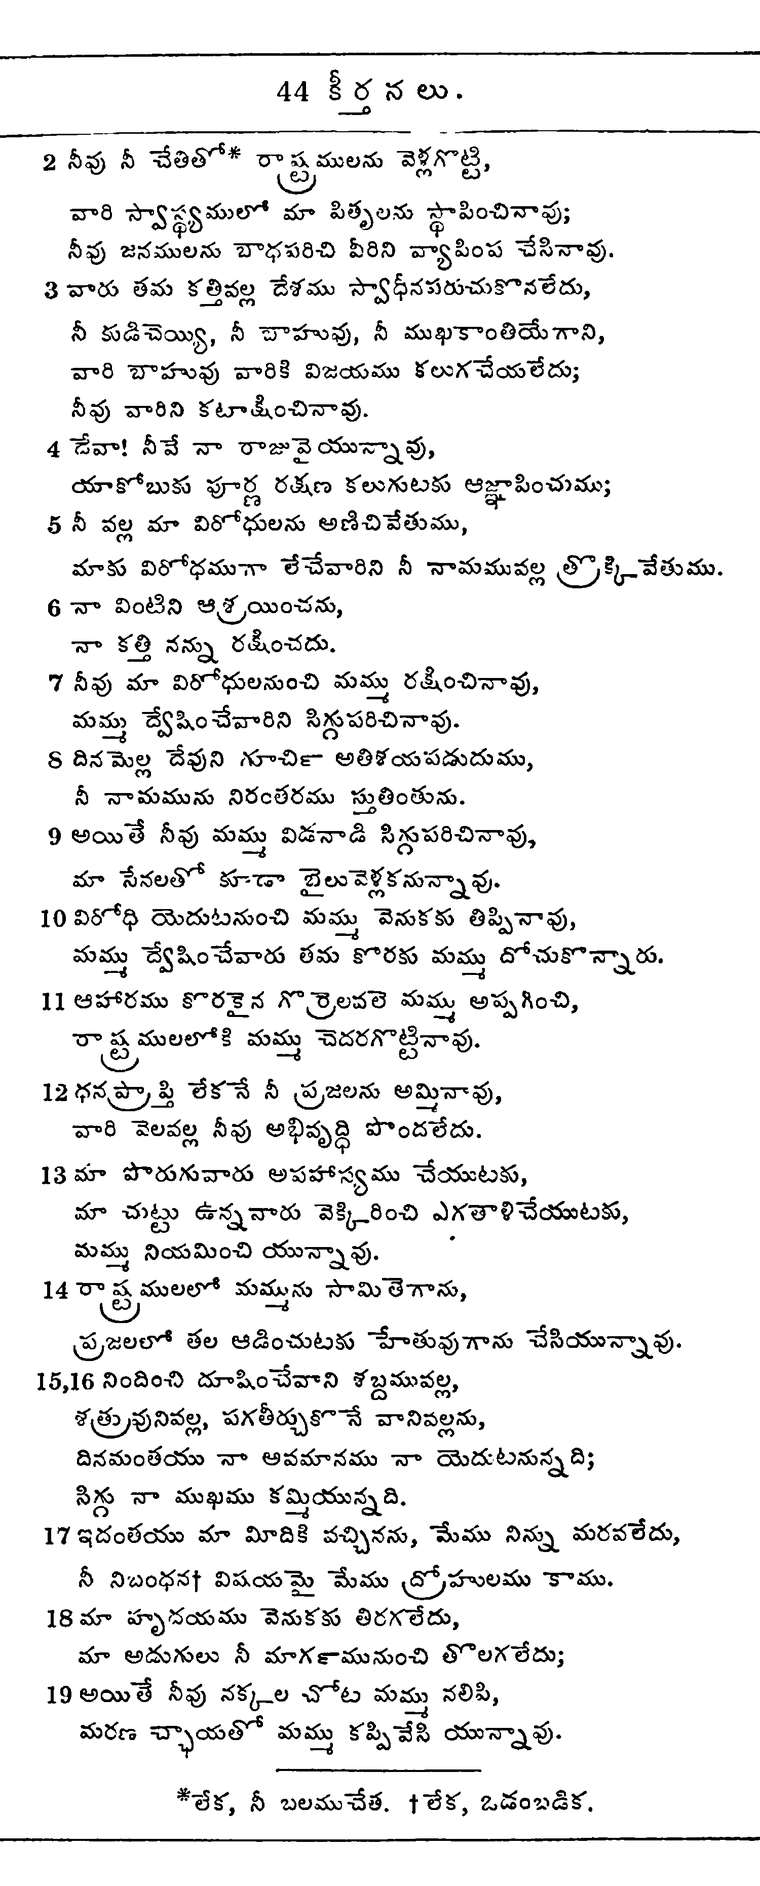 44 కీర్తనలు.
2 నీవు నీ చేతితో* రాష్ట్రములను వెళ్లగొట్టి,
వారి స్వాస్థ్యములో మా పితృలను స్థాపించినావు;
నీవు జనములను బాధపరిచి వీరిని వ్యాపింప చేసినావు.
3 వారు తమ కత్తివల్ల దేశము స్వాధీనపరుచుకొనలేదు,
నీ కుడిచెయ్యి, నీ బాహువు, నీ ముఖకాంతియేగాని,
వారి బాహువు వారికి విజయము కలుగచేయలేదు;
నీవు వారిని కటాక్షించినావు.
4 దేవా! నీవే నా రాజువైయున్నావు,
యాకోబుకు పూర్ణ రక్షణ కలుగుటకు ఆజ్ఞాపించుము;
5 నీ వల్ల మా విరోధులను అణిచివేతుము,
మాకు విరోధముగా లేచేవారిని నీ నామమువల్ల త్రొక్కివేతుము.
6 నా వింటిని ఆశ్రయించను,
నా కత్తి నన్ను రక్షించదు.
7 నీవు మా విరోధులనుంచి మమ్ము రక్షించినావు,
మమ్ము ద్వేషించేవారిని సిగ్గుపరిచినావు.
8 దినమెల్ల దేవుని గూచి౯ అతిశయపడుదుము,
నీ నామమును నిరంతరము స్తుతింతును.
9 అయితే నీవు మమ్ము విడనాడి సిగ్గుపరిచినావు,
మా సేనలతో కూడా బైలువెళ్లకనున్నావు.
10 విరోధి యెదుటనుంచి మమ్ము వెనుకకు తిప్పినావు,
మమ్ము ద్వేషించేవారు తమ కొరకు మమ్ము దోచుకొన్నారు.
11 ఆహారము కొరకైన గొర్రెలవలె మమ్ము అప్పగించి,
రాష్ట్రములలోకి మమ్ము చెదరగొట్టినావు.
12 ధనప్రాప్తి లేకనే నీ ప్రజలను అమ్మినావు,
వారి వెలవల్ల నీవు అభివృద్ధి పొందలేదు.
13 మా పొరుగువారు అపహాస్యము చేయుటకు,
మా చుట్టు ఉన్నవారు వెక్కిరించి ఎగతాళిచేయుటకు,
మమ్ము నియమించి యున్నావు.
14 రాష్ట్రములలో మమ్మును సామితెగాను,
ప్రజలలో తల ఆడించుటకు హేతువుగాను చేసియున్నావు.
15,16 నిందించి దూషించేవాని శబ్దమువల్ల,
శత్రువునివల్ల, పగతీర్చుకొనే వానివల్లను,
దినమంతయు నా అవమానము నా యెదుటనున్నది;
సిగ్గు నా ముఖము కమ్మియున్నది.
17 ఇదంతయు మా మీదికి వచ్చినను, మేము నిన్ను మరవలేదు,
నీ నిబంధన† విషయమై మేము ద్రోహులము కాము.
18 మా హృదయము వెనుకకు తిరగలేదు,
మా అడుగులు నీ మాగ౯మునుంచి తొలగలేదు;
19 అయితే నీవు నక్కల చోట మమ్ము నలిపి,
మరణ చ్ఛాయతో మమ్ము కప్పివేసి యున్నావు.
*లేక, నీ బలముచేత. †లేక, ఒడంబడిక.